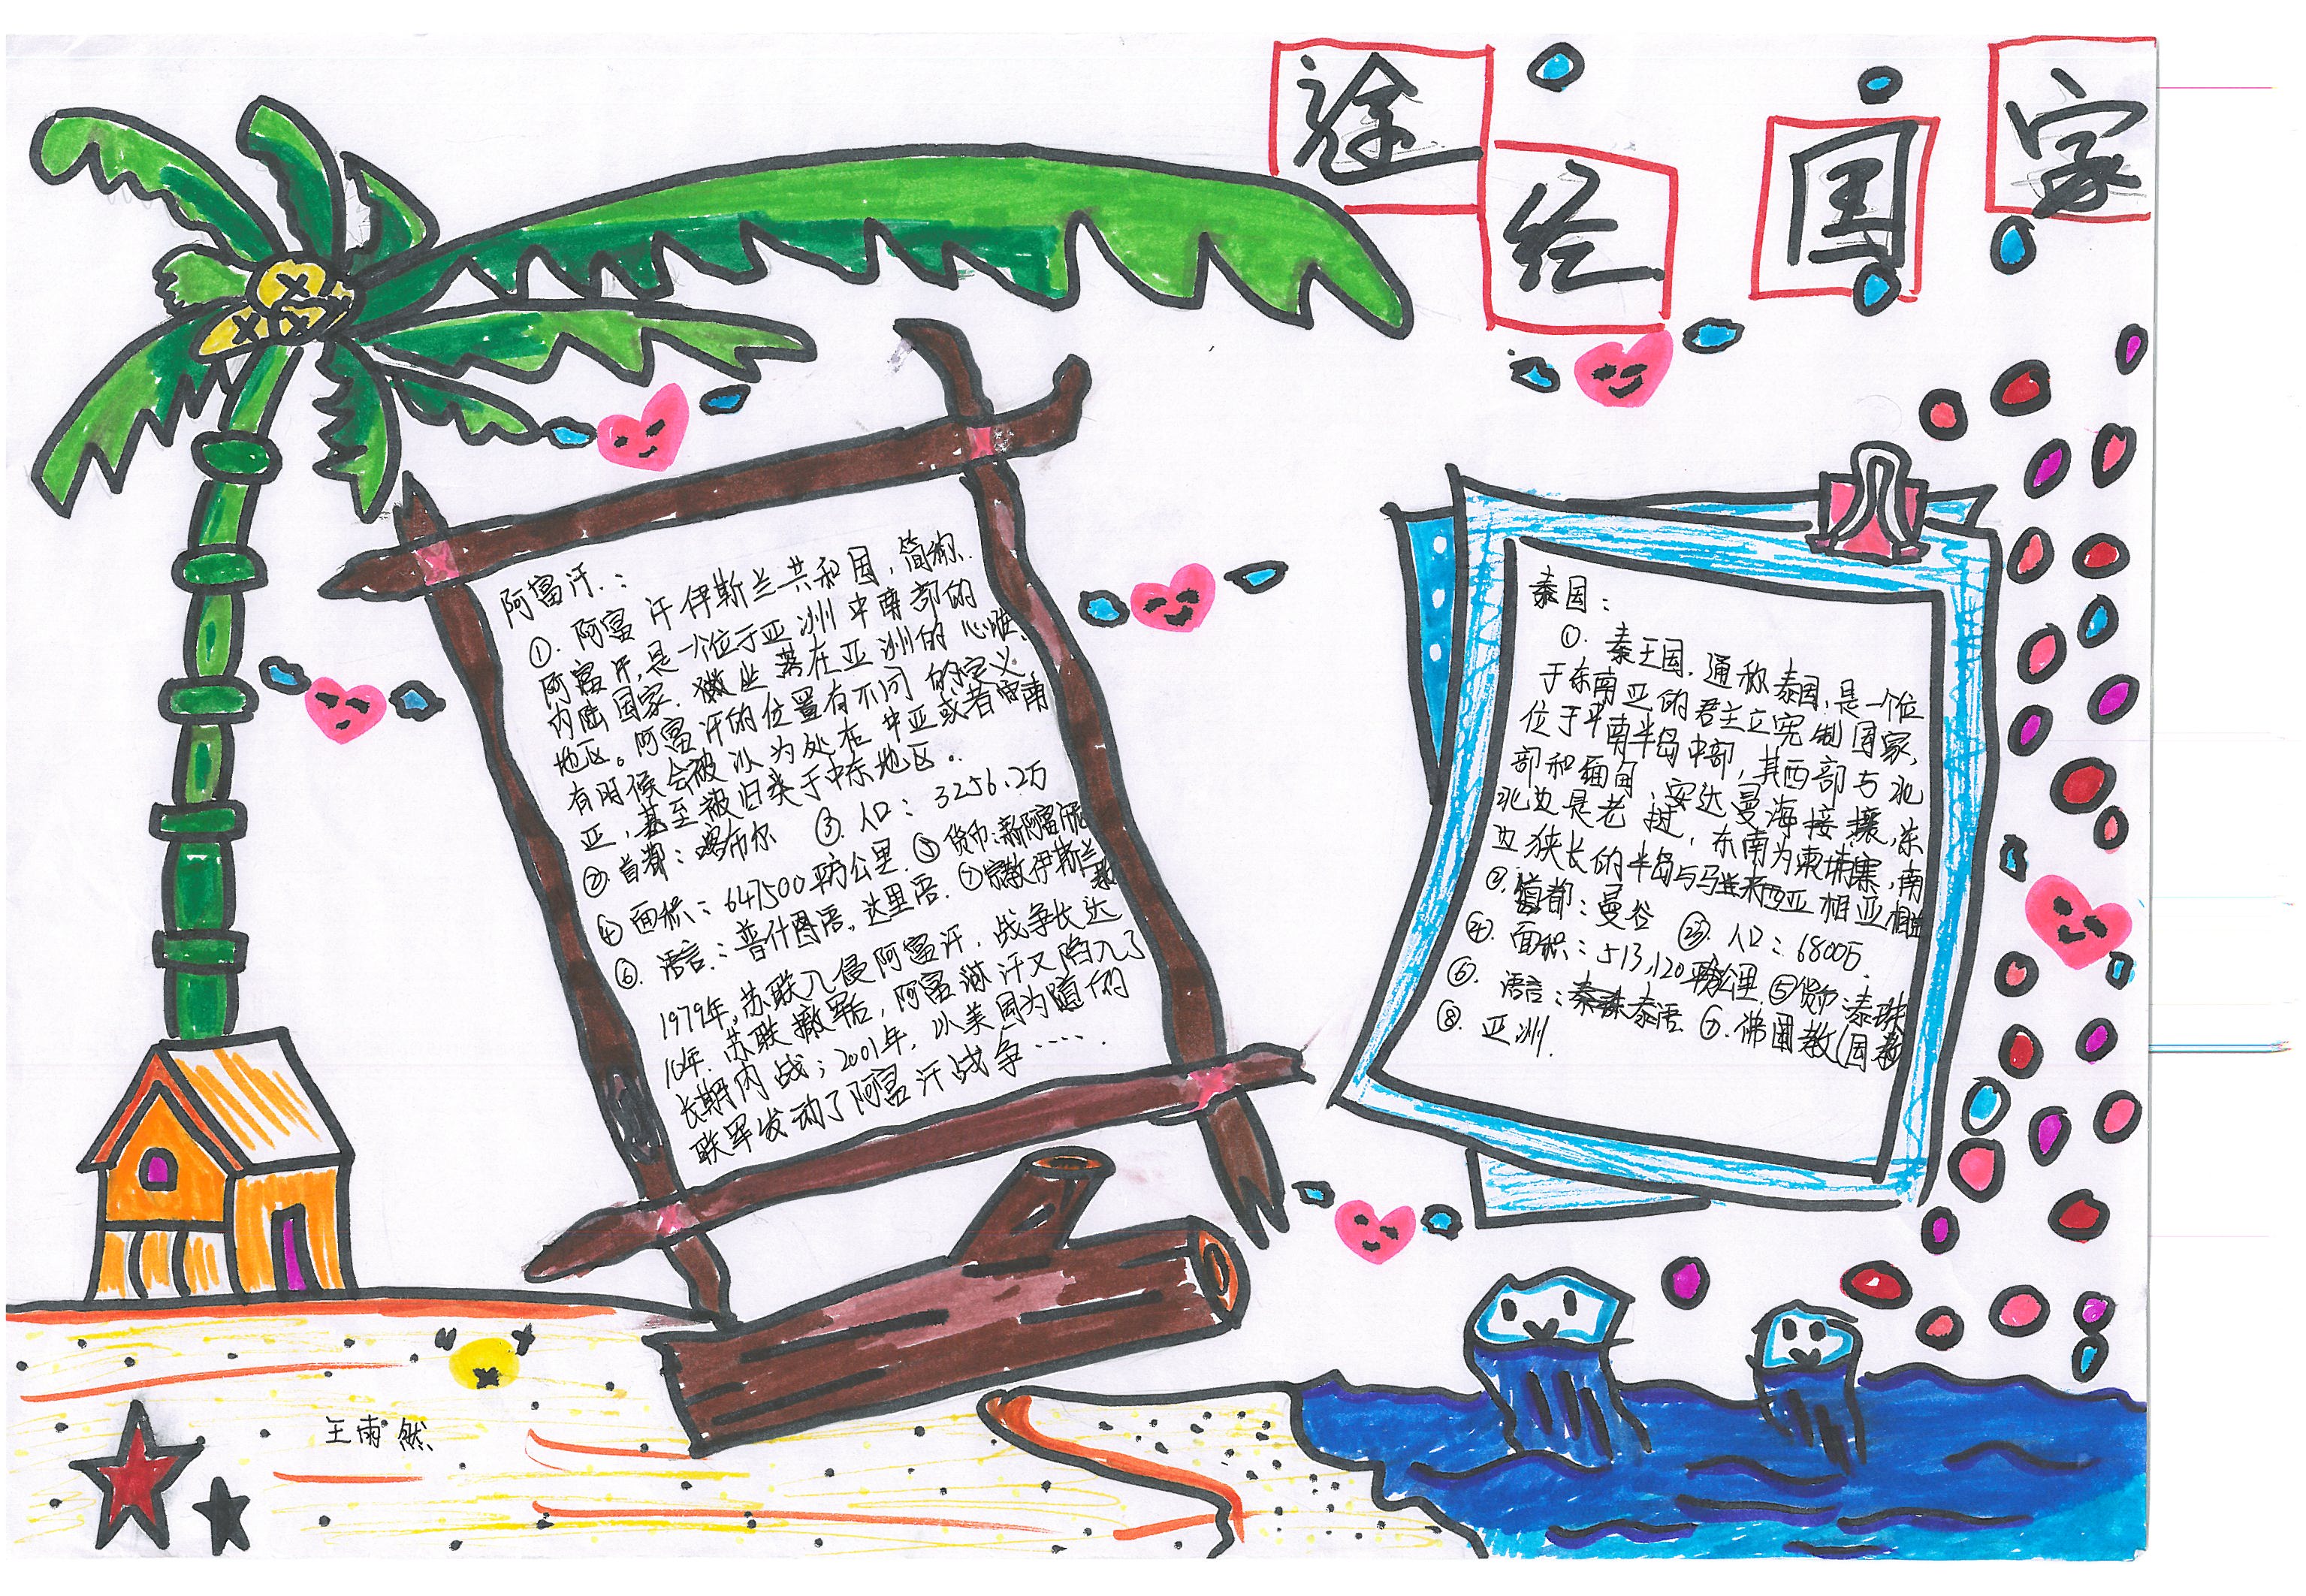 途经国家
阿富汗：
①．阿富汗伊斯兰共和国，简称．
阿富汗，是一个位于亚洲中南部的
内陆国家．坐落在亚洲的心脏
地区。阿富汗的位置有不同的定义．
有时候会被认为处在中亚或者中南
亚，甚至被归类于中东地区．
②．首都：喀布尔 ③．人口：3256.2万
④面积：647500平方公里．⑤货币：新阿富汗尼
⑥．语言：普什图语，达里语．⑦宗教伊斯兰教
1979年，苏联入侵阿富汗，战争长达
10年．苏联撤军后，阿富汗又陷入了
长期内战；2001年，以美国为首的
联军发动了阿富汗战争……
泰国：
①．泰王国．通称泰国，是一个位
于东南亚的君主立宪制国家，
位于中南半岛中部，其西部与北
部和缅甸、安达曼海接壤，东
北边是老挝，东南为柬埔寨，南
边狭长的半岛与马来西亚相
②．首都：曼谷 ③．人口：6800万．
④．面积：513,120平方公里．⑤货币：泰铢
⑥．语言：泰语 ⑦．佛教(国教
⑧．亚洲．
王雨然